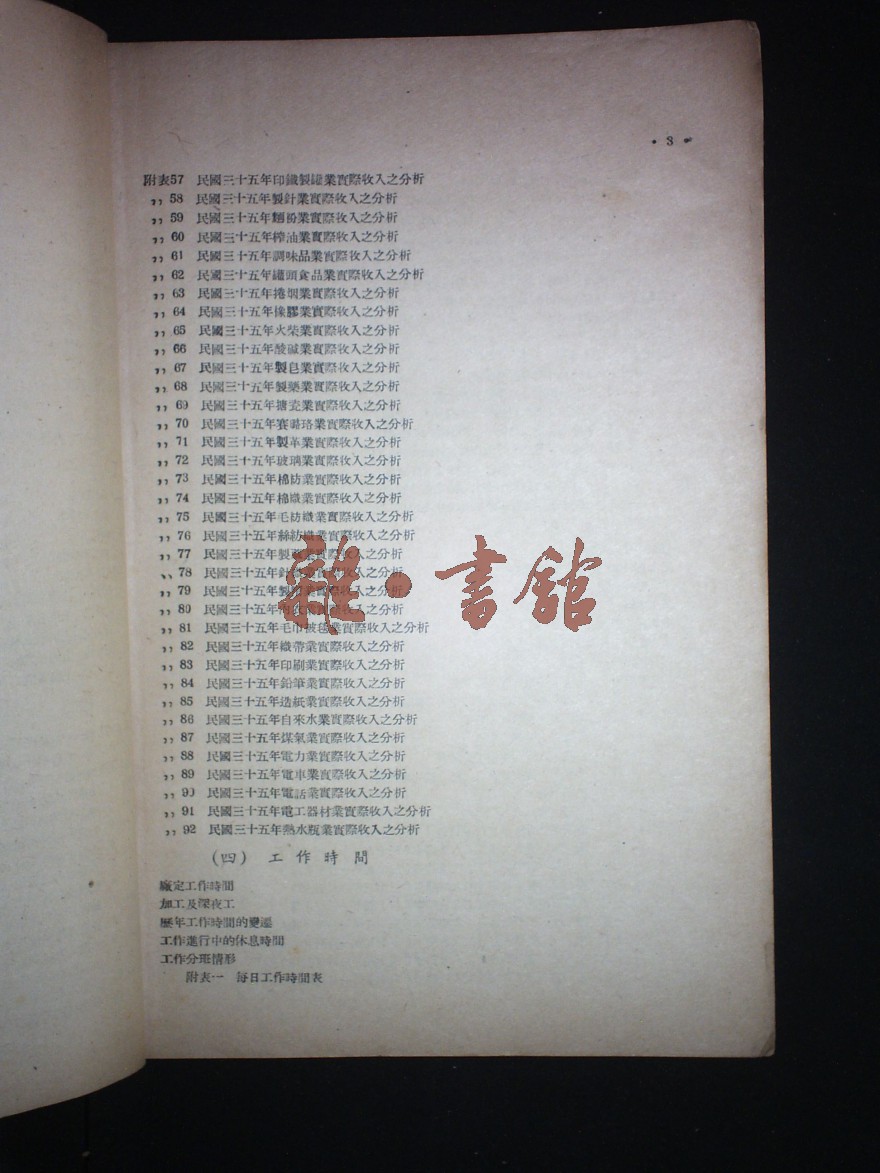 • 3 •
附表57 民國三十五年印鐵製罐業實際收入之分析
,, 58 民國三十五年製針業實際收入之分析
,, 59 民國三十五年麵粉業實際收入之分析
,, 60 民國三十五年榨油業實際收入之分析
,, 61 民國三十五年調味品業實際收入之分析
,, 62 民國三十五年罐頭食品業實際收入之分析
,, 63 民國三十五年捲烟業實際收入之分析
,, 64 民國三十五年橡膠業實際收入之分析
,, 65 民國三十五年火柴業實際收入之分析
,, 66 民國三十五年酸鹼業實際收入之分析
,, 67 民國三十五年製皂業實際收入之分析
,, 68 民國三十五年製藥業實際收入之分析
,, 69 民國三十五年搪瓷業實際收入之分析
,, 70 民國三十五年賽璐珞業實際收入之分析
,, 71 民國三十五年製革業實際收入之分析
,, 72 民國三十五年玻璃業實際收入之分析
,, 73 民國三十五年棉紡業實際收入之分析
,, 74 民國三十五年棉織業實際收入之分析
,, 75 民國三十五年毛紡織業實際收入之分析
,, 76 民國三十五年絲紡織業實際收入之分析
,, 77 民國三十五年製業實際收入之分析
,, 78 民國三十五年針業實際收入之分析
,, 79 民國三十五年製業實際收入之分析
,, 80 民國三十五年內衣業實際收入之分析
,, 81 民國三十五年毛巾被毯業實際收入之分析
,, 82 民國三十五年織帶業實際收入之分析
,, 83 民國三十五年印刷業實際收入之分析
,, 84 民國三十五年鉛筆業實際收入之分析
,, 85 民國三十五年造紙業實際收入之分析
,, 86 民國三十五年自來水業實際收入之分析
,, 87 民國三十五年煤氣業實際收入之分析
,, 88 民國三十五年電力業實際收入之分析
,, 89 民國三十五年電車業實際收入之分析
,, 90 民國三十五年電話業實際收入之分析
,, 91 民國三十五年電工器材業實際收入之分析
,, 92 民國三十五年熱水瓶業實際收入之分析
(四) 工作時間
廠定工作時間
加工及深夜工
歷年工作時間的變遷
工作進行中的休息時間
工作分班情形
附表一 每日工作時間表
雜·書館